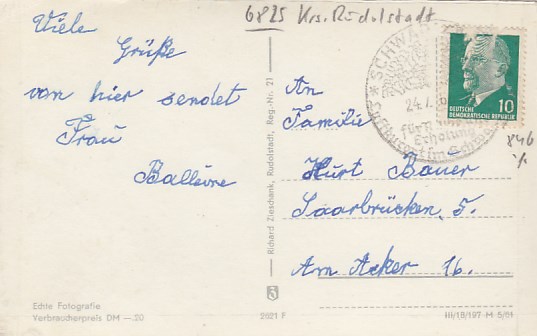 6825 Krs. Rudolstadt
Viele
Grüße
von hier sendet
Frau
An
Familie
Kurt Bauer
Saarbrücken, 5.
Am Acker 16.
SCHWAR
24.7.
für
Erholung
DEUTSCHE
DEMOKRATISCHE REPUBLIK
10
846
Richard Zieschank, Rudolstadt, Reg.-Nr. 21
Echte Fotografie
Verbraucherpreis DM —.20
2621 F
III/18/197 H 5/61